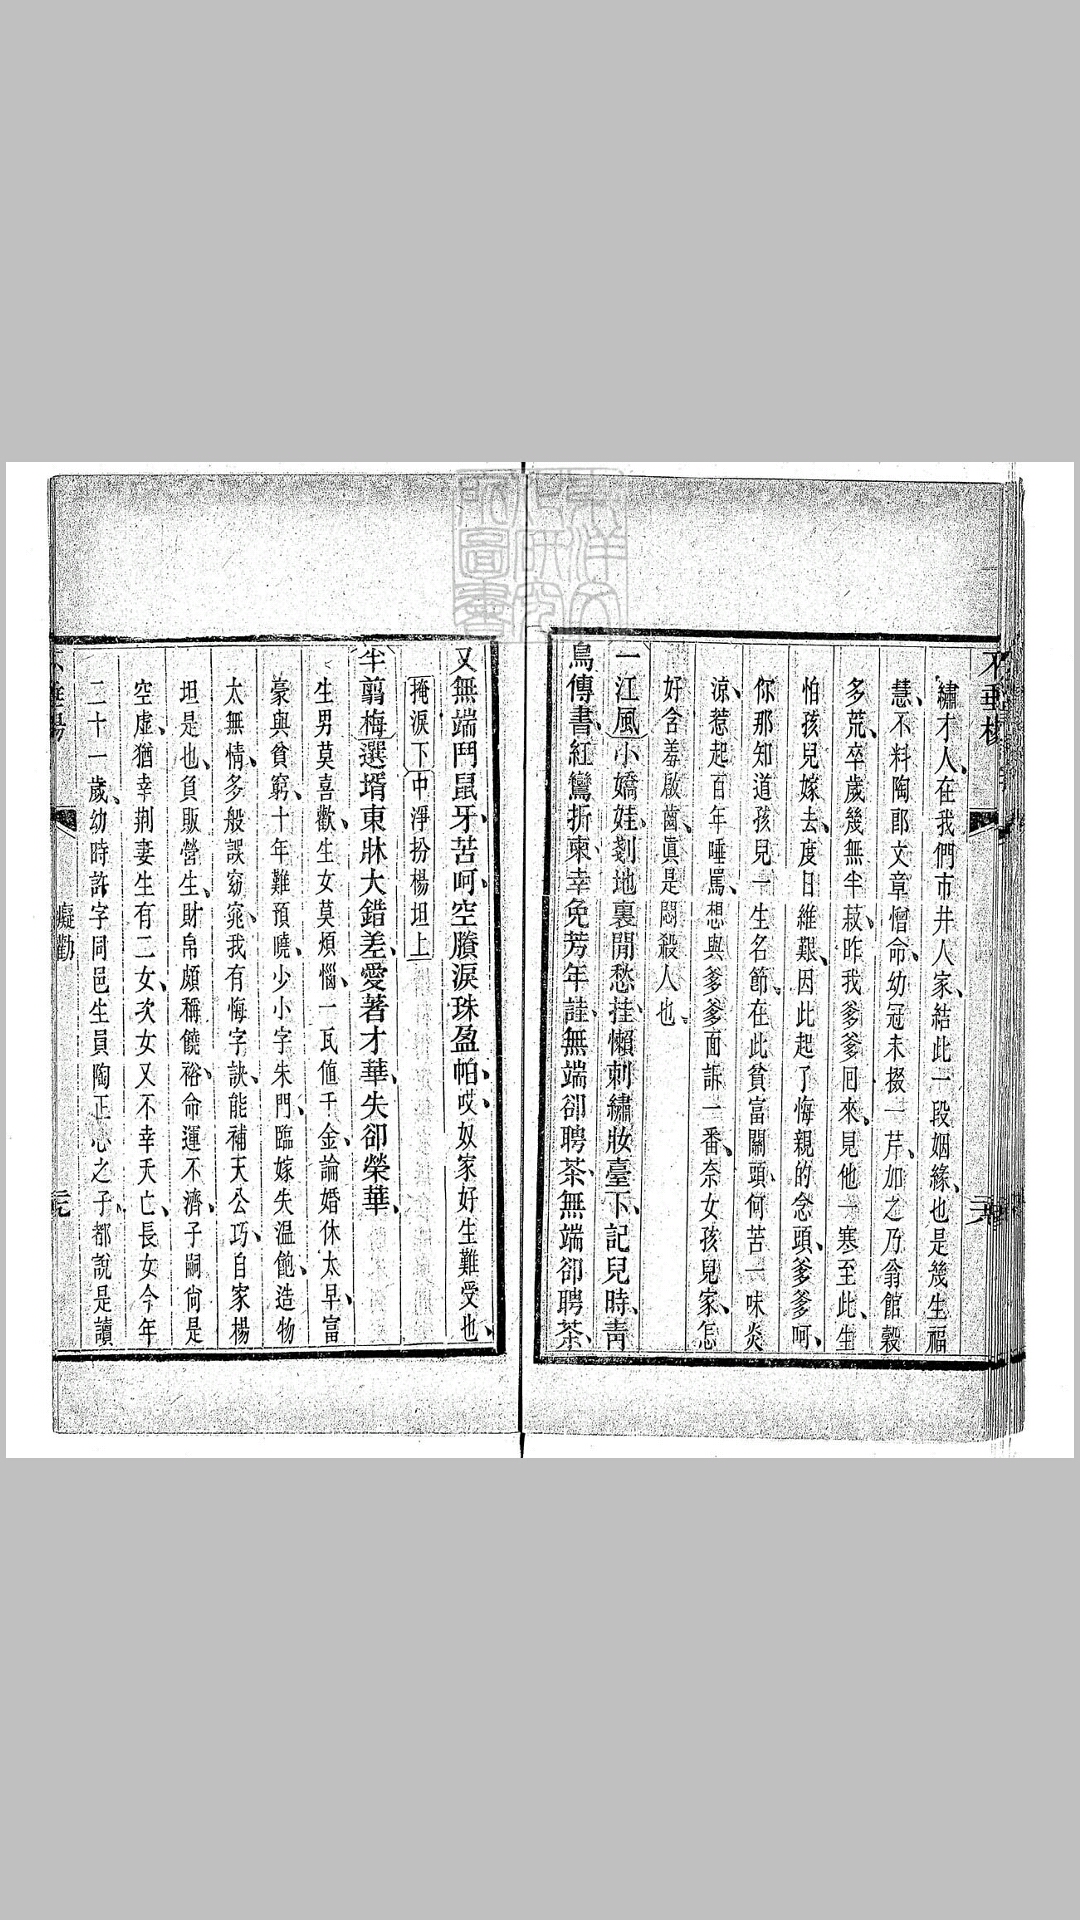 繡才人、在我們市井人家、結此一段姻緣、也是幾生福
慧、不料陶郎文章憎命、幼冠未掇一芹、加之乃翁館穀
多荒、卒歲幾無半菽、昨我爹爹囘來、見他一寒至此、生
怕孩兒嫁去、度日維艱、因此起了悔親的念頭、爹爹呵、
你那知道孩兒一生名節、在此貧富關頭、何苦一味炎
涼、惹起百年唾罵、想與爹爹面訴一番、奈女孩兒家、怎
好含羞啟齒、眞是悶殺人也。
一江風小嬌娃、剗地裏閒愁挂、懶刺繡妝臺下、記兒時、靑
鳥傳書、紅鸞折柬、幸免芳年詿、無端卻聘茶、無端卻聘茶、
又無端鬥鼠牙、苦呵、空賸淚珠盈帕、哎、奴家好生難受也、
掩淚下中淨扮楊坦上
半剪梅選壻東牀大錯差、愛著才華、失卻榮華、
生男莫喜歡、生女莫煩惱、一瓦値千金、論婚休太早、富
豪與貧窮、十年難預曉、少小字朱門、臨嫁失温飽、造物
太無情、多般誤窈窕、我有悔字訣、能補天公巧、自家楊
坦是也、負販營生、財帛頗稱饒裕、命運不濟、子嗣尙是
空虛、猶幸荆妻生有二女、次女又不幸夭亡、長女今年
二十一歲、幼時許字同邑生員陶正心之子、都說是讀
癡勸